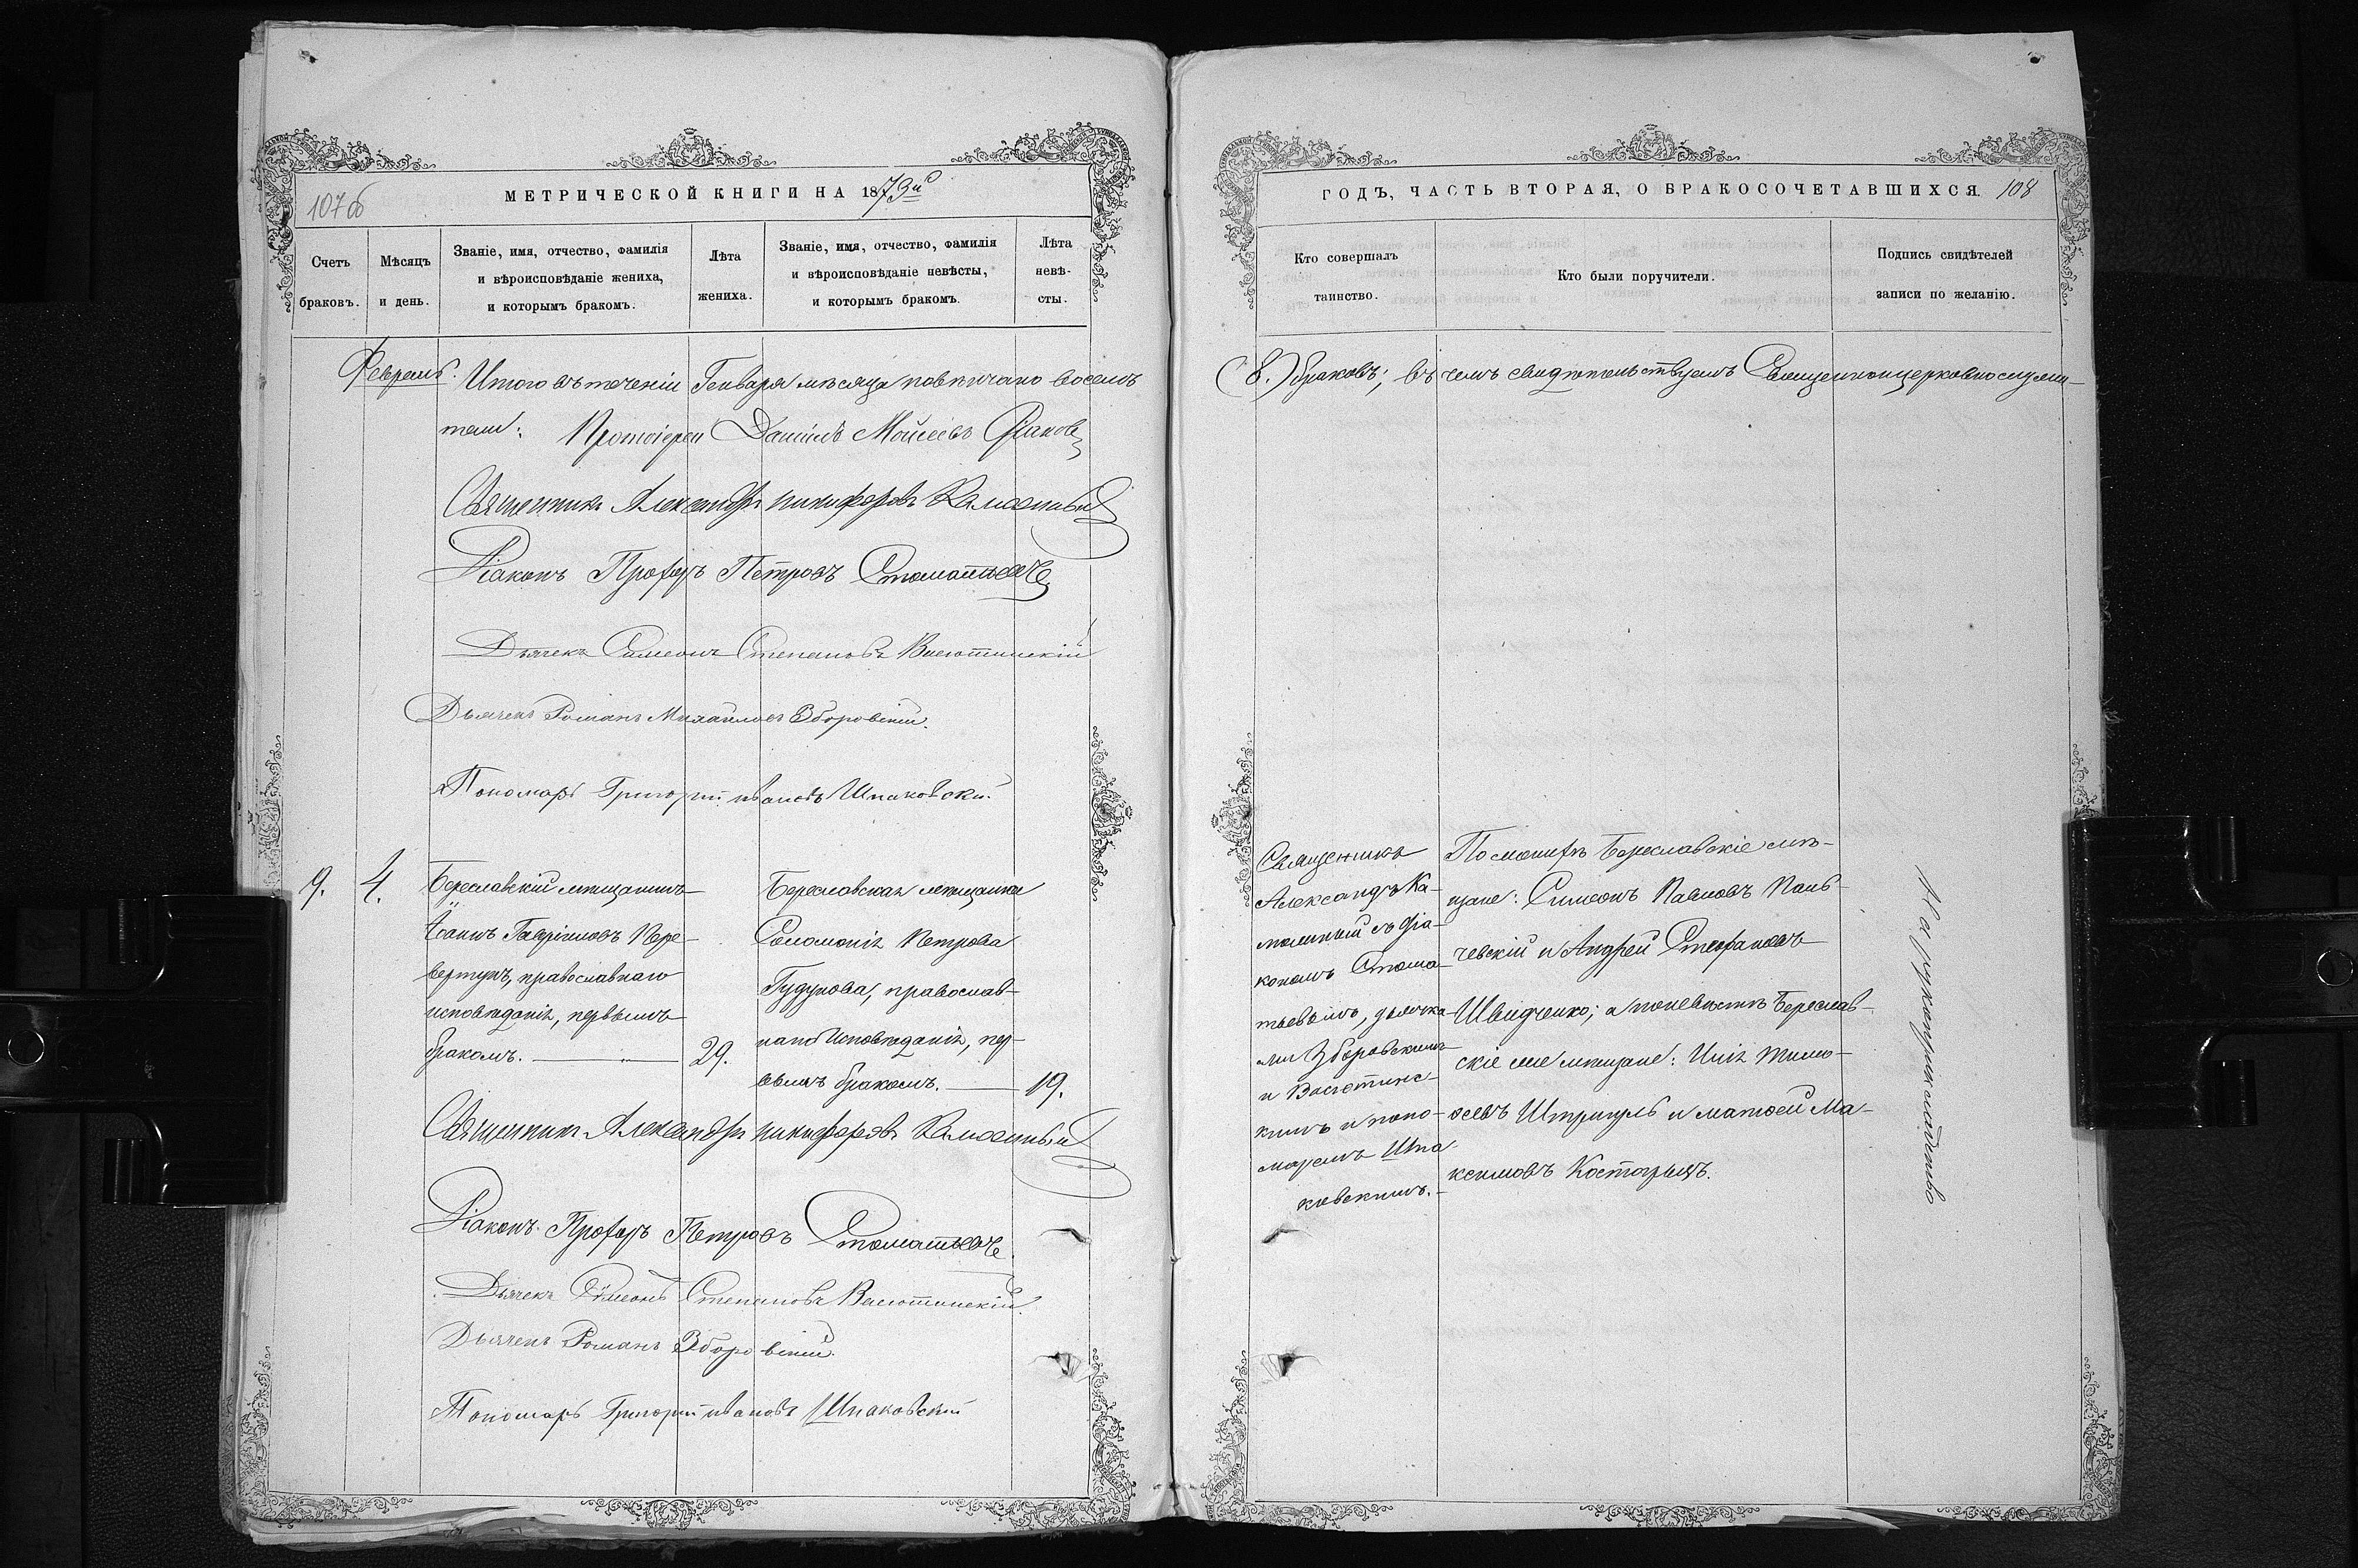 107об
МЕТРИЧЕСКОЙ КНИГИ НА 1873й
Счетъ браковъ.
Мѣсяцъ и день.
Званіе, имя, отчество, фамилія
и вѣроисповѣданіе жениха,
и которымъ бракомъ.
Лѣта жениха.
Званіе, имя, отчество, фамилія
и вѣроисповѣданіе невѣсты,
и которымъ бракомъ
Лѣта невѣ-
сты.
Февраль. Итого въ теченіи Генваря мѣсяца повѣнчано восемь
тели: Протоіерей Даніилъ Моисеевъ
Священникъ Александръ Никифоровъ
Діаконъ Прохоръ Петровъ Стоматьевъ
Дьячекъ Симеонъ Степановъ Васютинскій
Дьячекъ Романъ Михайловъ Зборовскій.
Пономарь Григорій Ивановъ Шпаковскій
9. 4.
Береславскій мѣщанинъ
Іоаннъ Гавріиловъ Пере-
вертунъ, православнаго
исповѣданія, первымъ
бракомъ. 29.
Береславская мѣщанка
Соломонія Петрова
Гудунова, православ-
наго исповѣданія, пер-
вымъ бракомъ. 19.
Священникъ Александръ Никифоровъ
Діаконъ Прохоръ Петровъ Стоматьевъ
Дьячекъ Симеонъ Степановъ Васютинскій
Дьячекъ Романъ Зборовскій.
Пономарь Григорій Ивановъ Шпаковскій
ГОДЪ, ЧАСТЬ ВТОРАЯ, О БРАКОСОЧЕТАВШИХСЯ. 108
Кто совершалъ
таинство.
Кто были поручители.
Подпись свидѣтелей
записи по желанію.
(8.) браковъ; въ чемъ свидѣтельствуемъ Священноцерковнослужи-
Священникъ
Александръ Ка-
съ діа-
кономъ Стома-
тьевымъ, дьячка-
ми Зборовскимъ
и Васютинс-
кимъ и поно-
маремъ Шпа
ковскимъ.
По женихѣ Береславскіе мѣ-
щане: Симеонъ Павловъ
и Андрей Стефановъ
Швидченко; а по невѣстѣ Береслав-
скіе же мѣщане: Илія Тимо-
ѳеевъ и Матѳей Ма-
ксимовъ Костырьдъ.